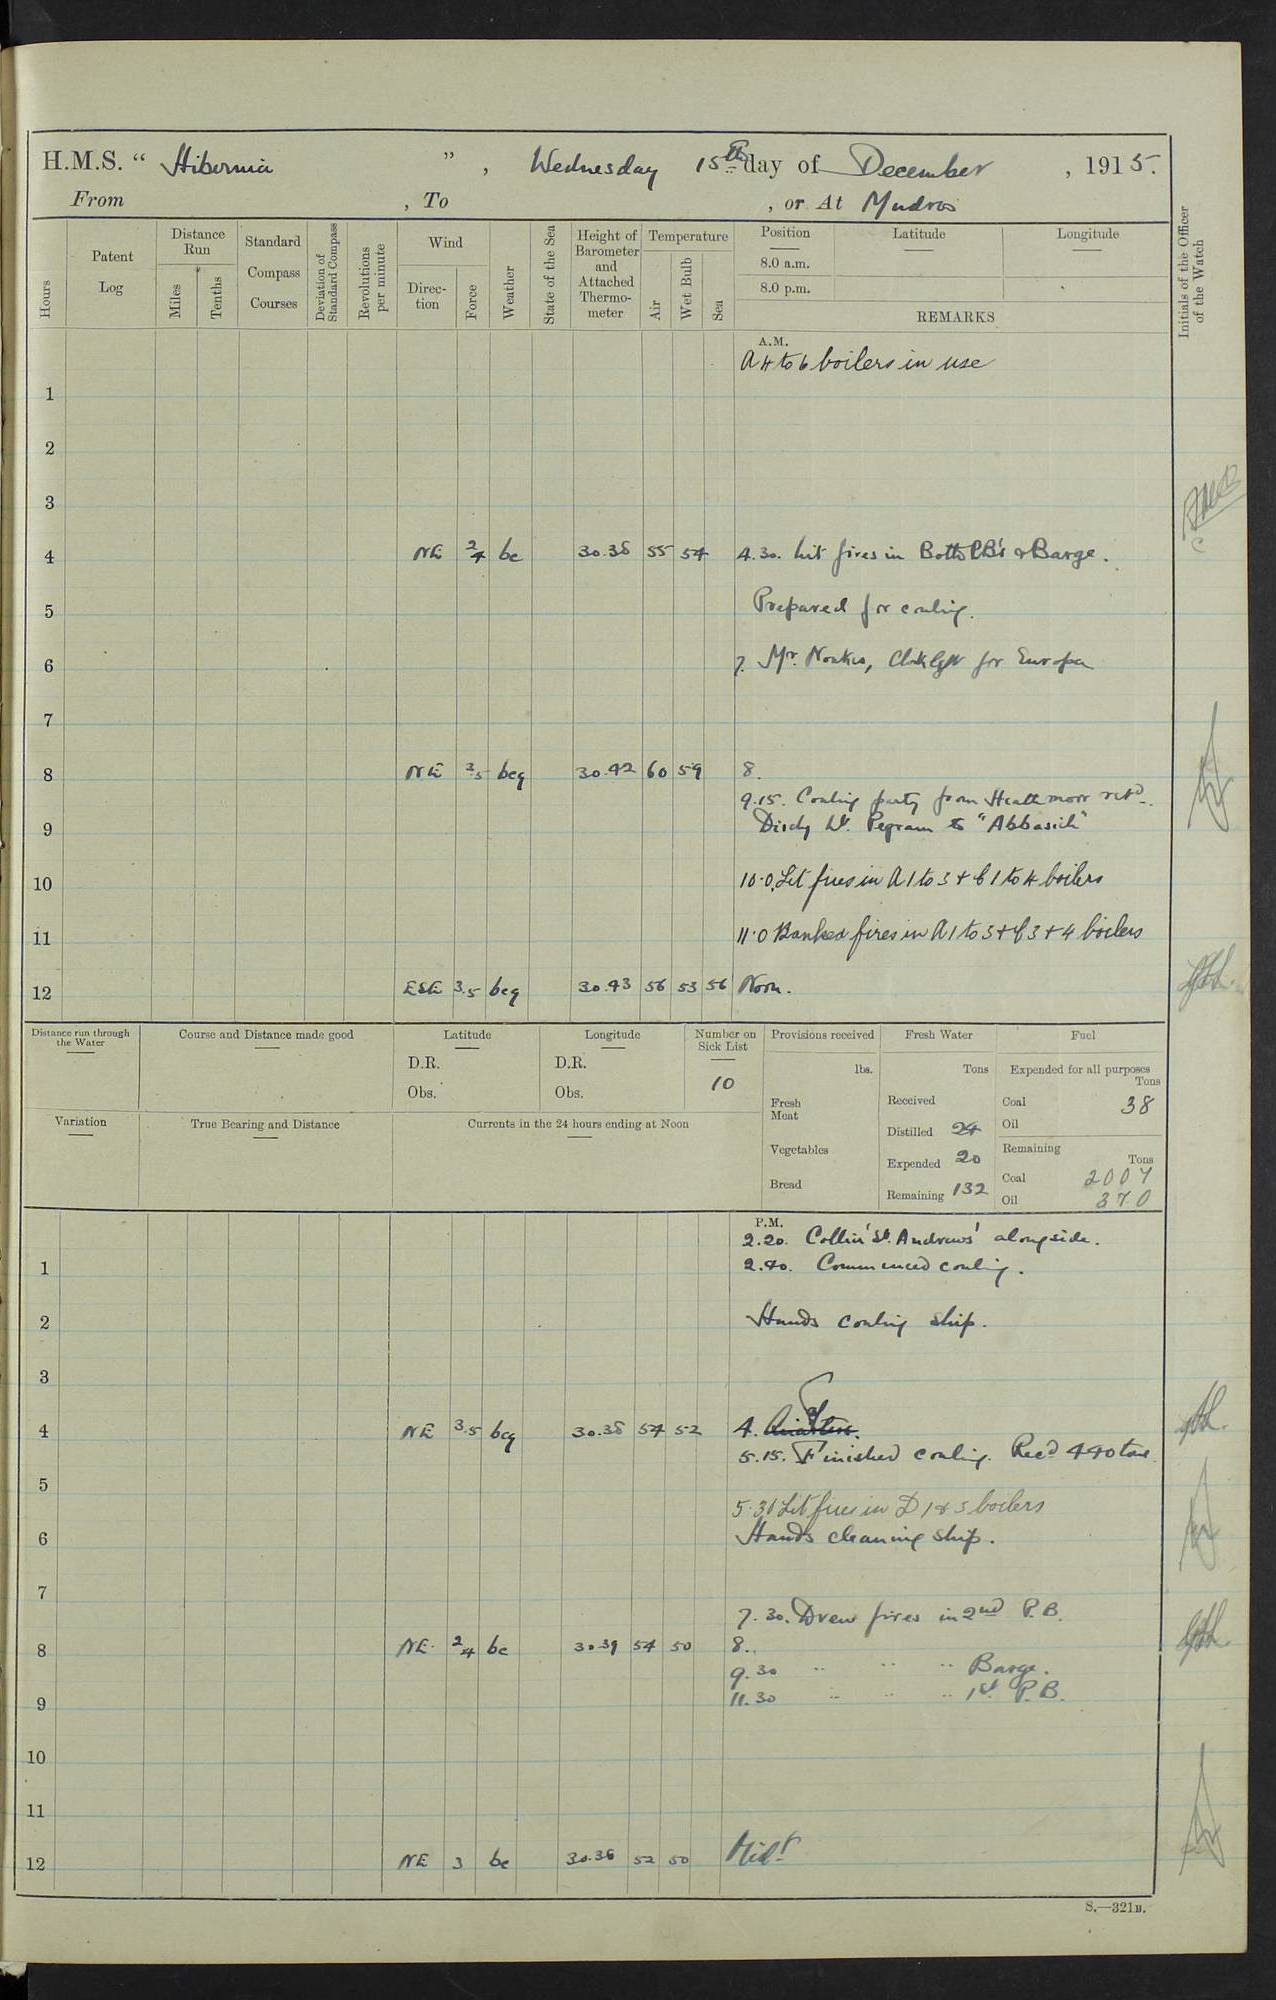 H.M.S. "Hibernia", Wednesday 15th day of December, 1915.
From , To , or At Mudros
Hours
Patent Log
Distance Run
Miles
Tenths
Standard Compass Courses
Deviation of Standard Compass
Revolutions per minute
Wind
Direction
Force
Weather
State of the Sea
Height of Barometer and Attached Thermometer
Temperature
Air
Wet Bulb
Sea
Position
8.0 a.m.
8.0 p.m.
Latitude
Longitude
REMARKS
Initials of the Officer of the Watch
A.M.
A 4 to 6 boilers in use
1
2
3
4 NE 2/4 bc 30.38 55 54 4.30. Lit fires in Both P.B's & Barge.
5 Prepared for coaling.
6 7. Mr. for Europa
7
8 NE 3.5 bcq 30.42 60 59 8.
9.15. Coaling party from Heathmoor retd.
9 Disch Lt. Pegram to "Abbasieh"
10 10.0. Lit fires in A 1 to 3 + 1 to 4 boilers
11 11.0 Banked fires in A 1 to 3 + 3 + 4 boilers
12 ESE 3.5 bcq 30.43 56 53 56 Noon.
Distance run through the Water
Course and Distance made good
Latitude
D.R.
Obs.
Longitude
D.R.
Obs.
Number on Sick List
10
Provisions received
lbs.
Fresh Meat
Vegetables
Bread
Fresh Water
Tons
Received
Distilled 24
Expended 20
Remaining 132
Fuel
Expended for all purposes
Tons
Coal 38
Oil
Remaining
Tons
Coal 2007
Oil 370
Variation
True Bearing and Distance
Currents in the 24 hours ending at Noon
P.M.
2.20. Collier 'St. Andrews' alongside.
1 2.40. Commenced coaling.
2 Hands coaling ship.
3
4 NE 3.5 bcq 30.38 54 52 4. Quarters.
5.15. Finished coaling. Recd 440 tons
5
5.30 Lit fires in D 1 & 3 boilers
6 Hands cleaning ship.
7
7.30. Drew fires in 2nd P.B.
8 NE 2/4 bc 30.39 54 50 8.
9.30 " " " Barge.
9 11.30 " " " 1st P.B.
10
11
12 NE 3 bc 30.36 52 50 Midt
S.—321B.